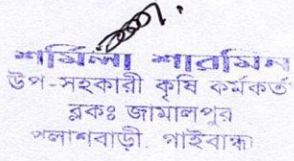 শর্মিলা শারমিন
উপ-সহকারী কৃষি কর্মকর্তা
ব্লকঃ জামালপুর
পলাশবাড়ী, গাইবান্ধা